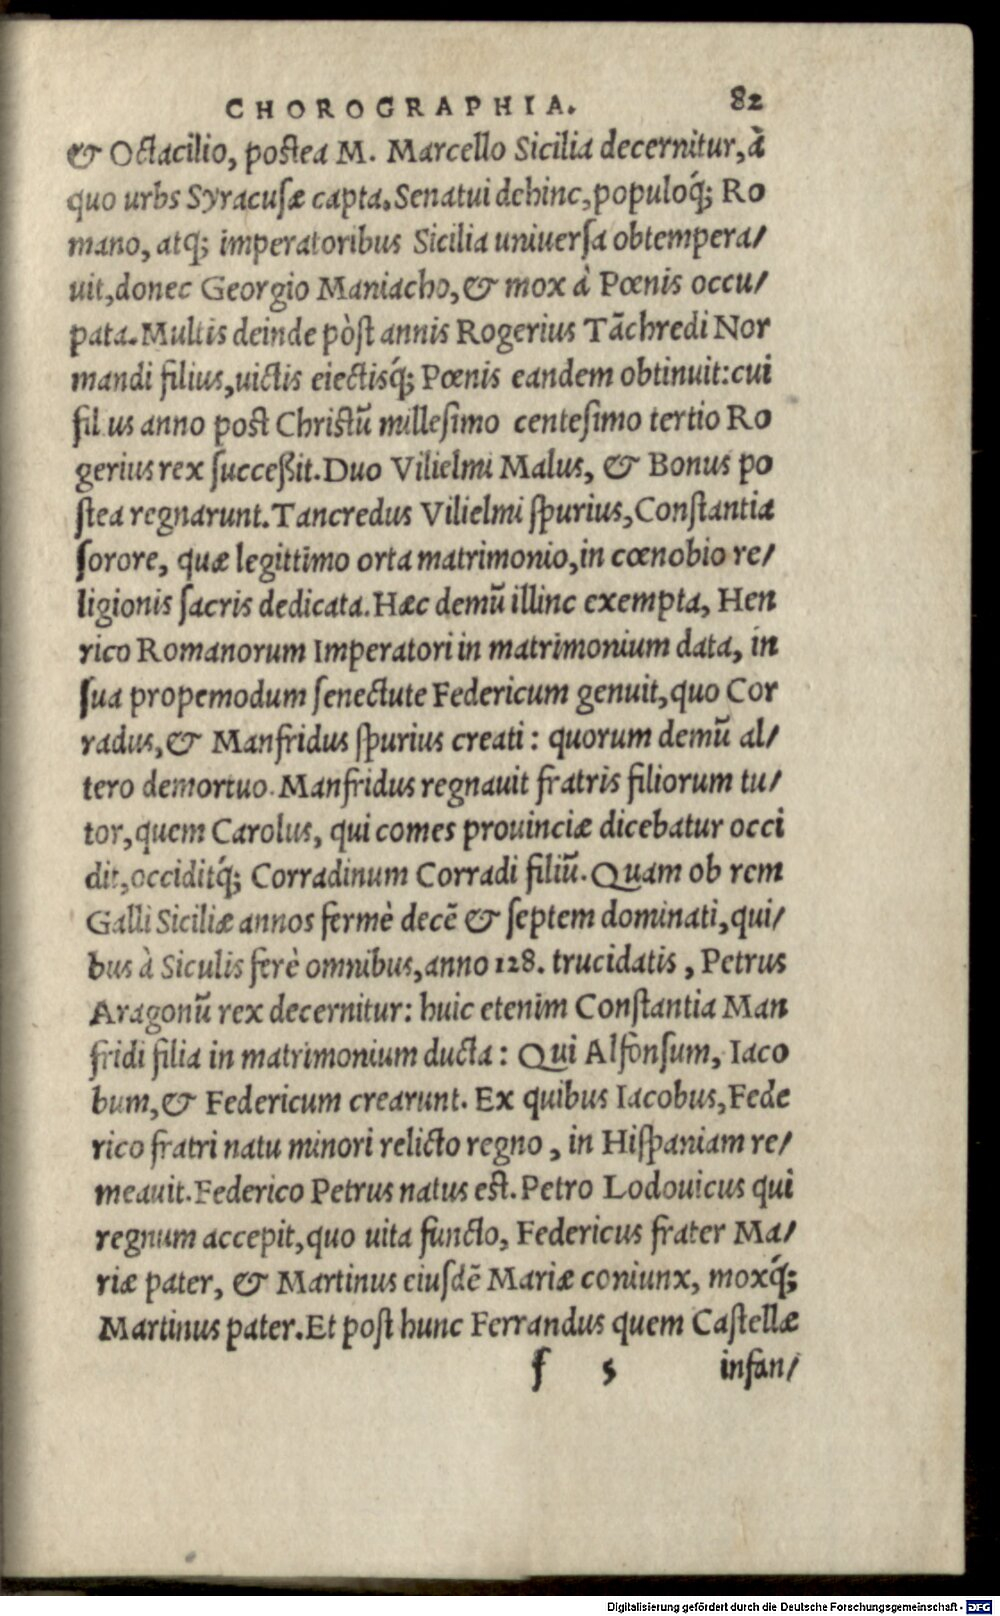 CHOROGRAPHIA. 82
& Octacilio, postea M. Marcello Sicilia decernitur, à
quo urbs Syracusæ capta. Senatui dehinc, populoq́; Ro
mano, atq; imperatoribus Sicilia uniuersa obtempera/
uit, donec Georgio Maniacho, & mox à Pœnis occu/
pata. Multis deinde pòst annis Rogerius Tãchredi Nor
mandi filius, uictis eiectisq́; Pœnis eandem obtinuit: cui
fil us anno post Christũ millesimo centesimo tertio Ro
gerius rex succeßit. Duo Vilielmi Malus, & Bonus po
stea regnarunt. Tancredus Vilielmi spurius, Constantia
sorore, quæ legittimo orta matrimonio, in cœnobio re/
ligionis sacris dedicata. Hæc demũ illinc exempta, Hen
rico Romanorum Imperatori in matrimonium data, in
sua propemodum senectute Federicum genuit, quo Cor
radus, & Manfridus spurius creati: quorum demũ al/
tero demortuo. Manfridus regnauit fratris filiorum tu/
tor, quem Carolus, qui comes prouinciæ dicebatur occi
dit, occiditq́; Corradinum Corradi filiũ. Quam ob rem
Galli Siciliæ annos fermè decẽ & septem dominati, qui/
bus à Siculis ferè omnibus, anno 128. trucidatis, Petrus
Aragonũ rex decernitur: huic etenim Constantia Man
fridi filia in matrimonium ducta: Qui Alfonsum, Iaco
bum, & Federicum crearunt. Ex quibus Iacobus, Fede
rico fratri natu minori relicto regno, in Hispaniam re/
meauit. Federico Petrus natus est. Petro Lodouicus qui
regnum accepit, quo uita functo, Federicus frater Ma/
riæ pater, & Martinus eiusdẽ Mariæ coniunx, moxq́;
Martinus pater. Et post hunc Ferrandus quem Castellæ
f 5 infan/
Digitalisierung gefördert durch die Deutsche Forschungsgemeinschaft - DFG